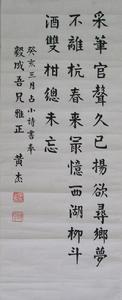 采筆官聲久已揚欲尋鄉夢
不離杭春來最憶西湖柳斗
酒雙柑總未忘
癸亥三月占小詩書奉
毅成吾兄雅正
黃杰